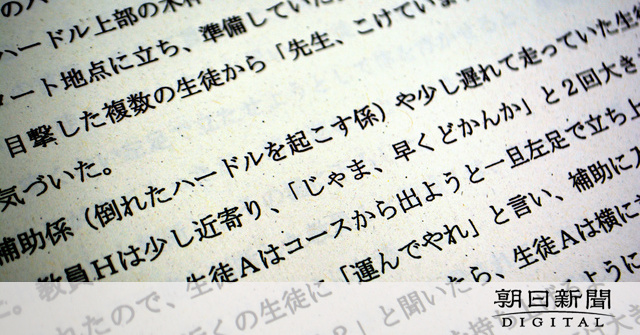 ハードル上部の木枠
ート地点に立ち、準備していた
目撃した複数の生徒から「先生、こけていま
気づいた。
補助係（倒れたハードルを起こす係）や少し遅れて走っていた生
教員Hは少し近寄り、「じゃま、早くどかんか」と2回大き
れたので、生徒Aはコースから出ようと一旦左足で立ち
くの生徒に「運んでやれ」と言い、補助に入
と聞いたら、生徒Aは横に
ように
朝日新聞
DIGITAL